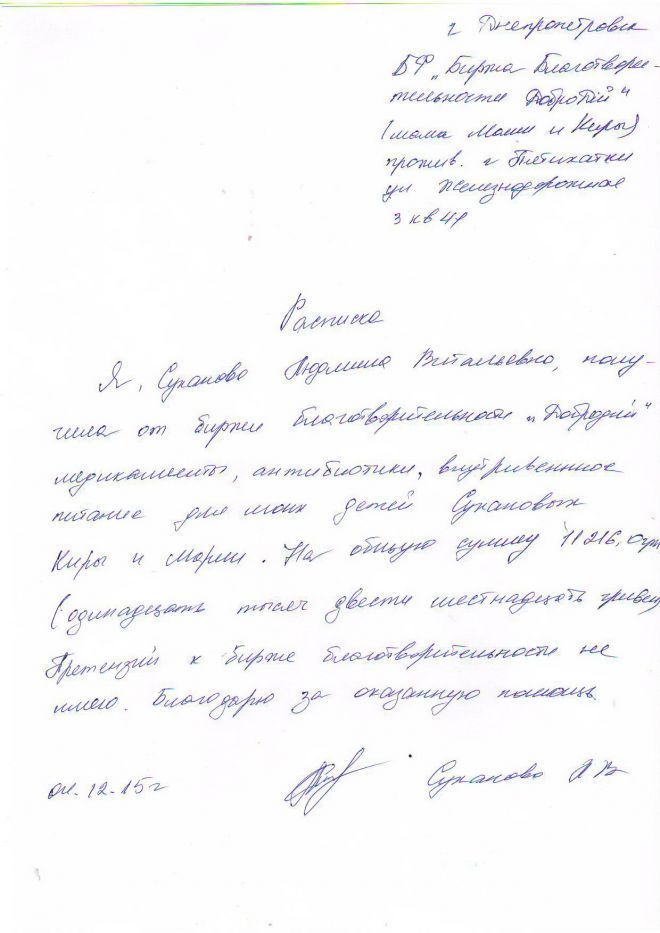 г Днепропетровск
БФ „Биржа Благотвори-
тельности Добродій"
(мама Маши и Киры)
прожив. г Пятихатки
ул Железнодорожная
3 кв 41
Расписка
Я, Суханова Людмила Витальевна, полу-
чила от биржи благотворительности „Добродий"
медикаменты, антибиотики, внутривенное
питание для моих детей Сухановых
Киры и Марии. На общую сумму 11216, 0грн
(одинадцать тысяч двести шестнадцать гривен)
Претензий к бирже благотворительности не
имею. Благодарю за оказанную помощь.
04.12.15г Суханова Л В